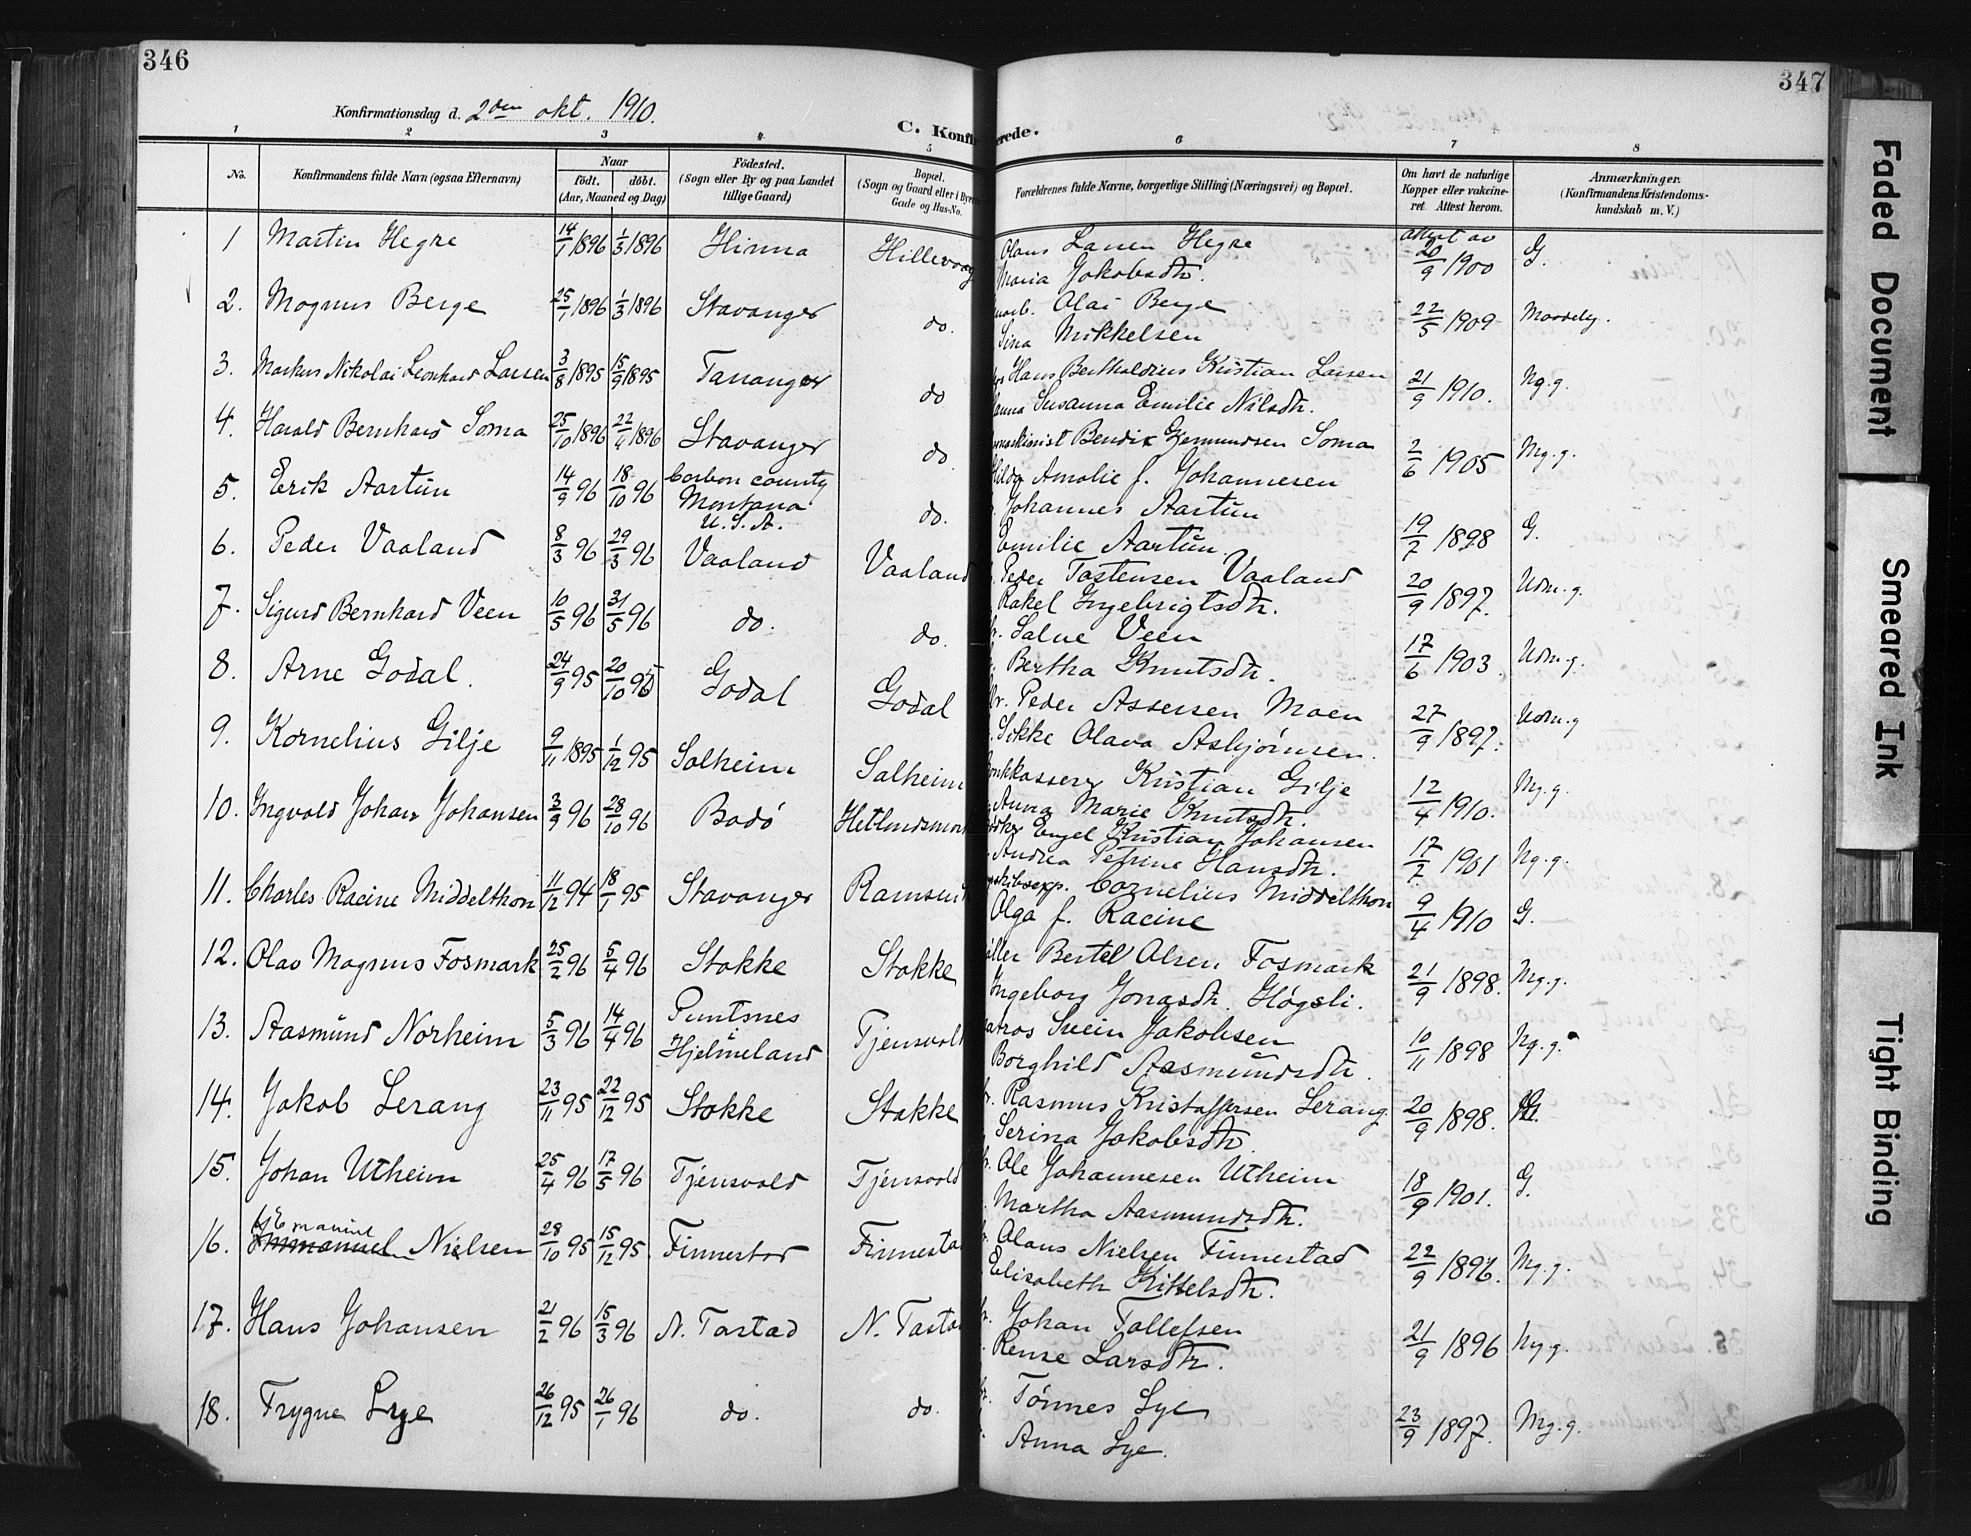 346
347
Konfirmationsdag d. 2den okt. 1910.
C. Konfir erede.
1 2 3 4 5 6 7 8
No.
Konfirmandens fulde Navn (ogsaa Efternavn)
Naar
födt. döbt.
(Aar, Maaned og Dag)
Födested.
(Sogn eller By og paa Landet
tillige Gaard)
Bopæl.
(Sogn og Gaard eller i Byerne
Gade og Hus-No.
Forældrenes fulde Navne, borgerlige Stilling (Næringsvei) og Bopæl.
Om havt de naturlige
Kopper eller vakcine-
ret. Attest herom.
Anmærkninger.
(Konfirmandens Kristendoms-
kundskab m. V.)
1 Martin Hegre 14/1 1896 1/3 1896 Hinna Hillevaag Olaus Hegre attest av 20/9 1900 G.
Maria Jakobsdtr.
2. Magnus Berge 25/1 1896 1/3 1896 Stavanger do. arb. Olai Berge 22/5 1909 Maadelig.
Sina Mikkelsen
3. Markus Nikolai Leonhard Larsen 3/8 1895 15/9 1895 Tananger do Hans Bertholdius Kristian Larsen 21/9 1910. Ng.g.
Susanna Emilie Nilsdtr.
4. Harald Bernhard Soma 25/10 1896 22/4 1896 Stavanger do. maskinist Bendix Gjermundsen Soma 2/6 1905 Mg.g.
Hilda Amalie f. Johannesen
5. Erik Aartun 14/9 96 18/10 96 Carbon county
Montana
U.S.A. do. Johannes Aartun 19/7 1898 G.
Emilie Aartun.
6. Peder Vaaland 8/3 96 29/3 96 Vaaland Vaaland Peder Tostensen Vaaland 20/9 1897. Udm.g.
Rakel Ingebrigtsdtr.
7. Sigurd Bernhard Veen 10/5 96 31/5 96 do. do. Salve Veen 17/6 1903 Udm.g.
Bertha Knutsdtr.
8. Arne Godal. 24/9 95 20/10 95 Godal Godal Peder Assersen Moen 27/9 1897. Udm.g
Sikke Olava Asbjörnsen.
9. Kornelius Gilje 9/11 1895 1/12 95 Solheim Solheim Bankkasserer Kristian Gilje 12/4 1910. Mg.g.
Anna Marie Knutsdtr.
10. Ingvald Johan Johansen 3/9 96 28/10 96 Bodö Hetlandsmark Engel Kristian Johansen 17/7 1901 Ng.g.
Andrea Petrine Hansdtr.
11. Charles Racine Middelthon 11/12 94 18/1 95 Stavanger Ramsund skibsexp. Cornelius Middelthon 9/4 1910 G.
Olga f. Racine
12. Olav Magnus Fosmark 25/2 96 5/4 96 Stokke Stokke Bertel Olsen Fosmark 21/9 1898. Mg.g.
Ingeborg Jonasdtr. Høgsli.
13. Aasmund Norheim 5/3 96 14/4 96 Puntsnes
i
Hjelmeland Tjensvold Matros Svein Jakobsen 10/11 1898 Ng.g.
Borghild Aasmundsdtr.
14. Jakob Lerang 23/11 95 22/12 95 Stokke Stokke Rasmus Kristoffersen Lerang 20/9 1898.
Serina Jakobsdtr
15. Johan Utheim 25/4 96 17/5 96 Tjensvold Tjensvold Ole Johannesen Utheim 18/9 1901. G.
Martha Aasmundsdtr.
16. Emanuel Nielsen 28/10 95 15/12 95 Finnestad Finnestad Olaus Nielsen Finnestad 22/9 1896. Mg.g.
Elisabeth Kittelsdtr.
17. Hans Johansen 21/2 96 15/3 96 N. Tastad N. Tasta Johan Tollefsen 21/9 1896 Ng.g.
Larsdtr.
18. Trygve Lye 26/12 95 26/1 96 do. do. Tönnes Lye 23/9 1897. Mg.g.
Anna Lye.
Faded Document
Smeared Ink
Tight Binding